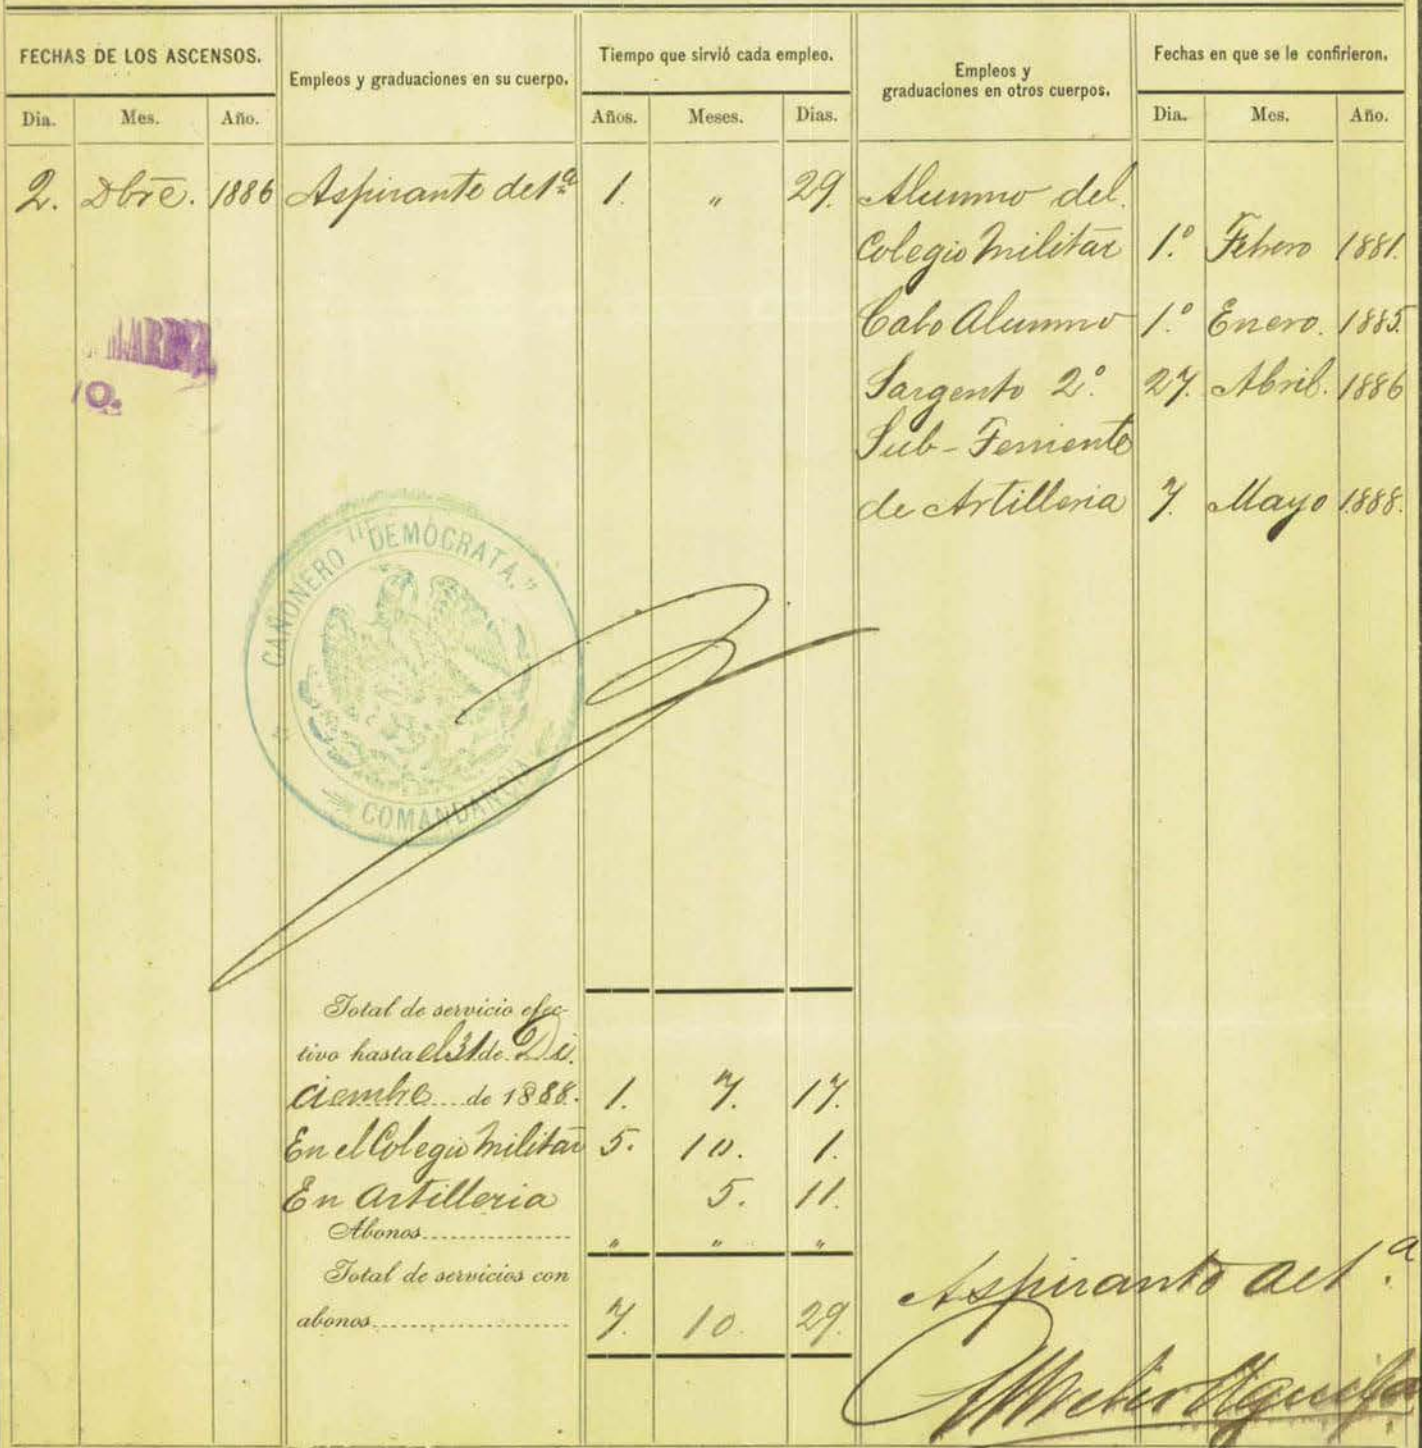 FECHAS DE LOS ASCENSOS.
Empleos y graduaciones en su cuerpo.
Tiempo que sirvió cada empleo.
Empleos y
graduaciones en otros cuerpos.
Fechas en que se le confirieron.
Dia. Mes. Año.
Años. Meses. Dias.
Dia. Mes. Año.
2. Dbre. 1886 Aspirante de 1ª 1. " 29. Alumno del
Colegio Militar 1.º Febrero 1881.
Cabo Alumno 1.º Enero. 1885.
Sargento 2.º 27. Abril. 1886
Sub-Teniente
de Artilleria 7. Mayo 1888.
CAÑONERO "DEMOCRATA."
COMANDANCIA
Total de servicio efec-
tivo hasta el 31 de Di.
ciembre de 1888. 1. 7. 17.
En el Colegio Militar 5. 10. 1.
En Artilleria 5. 11.
Abonos " " "
Total de servicios con
abonos 7. 10. 29.
Aspirante de 1.ª